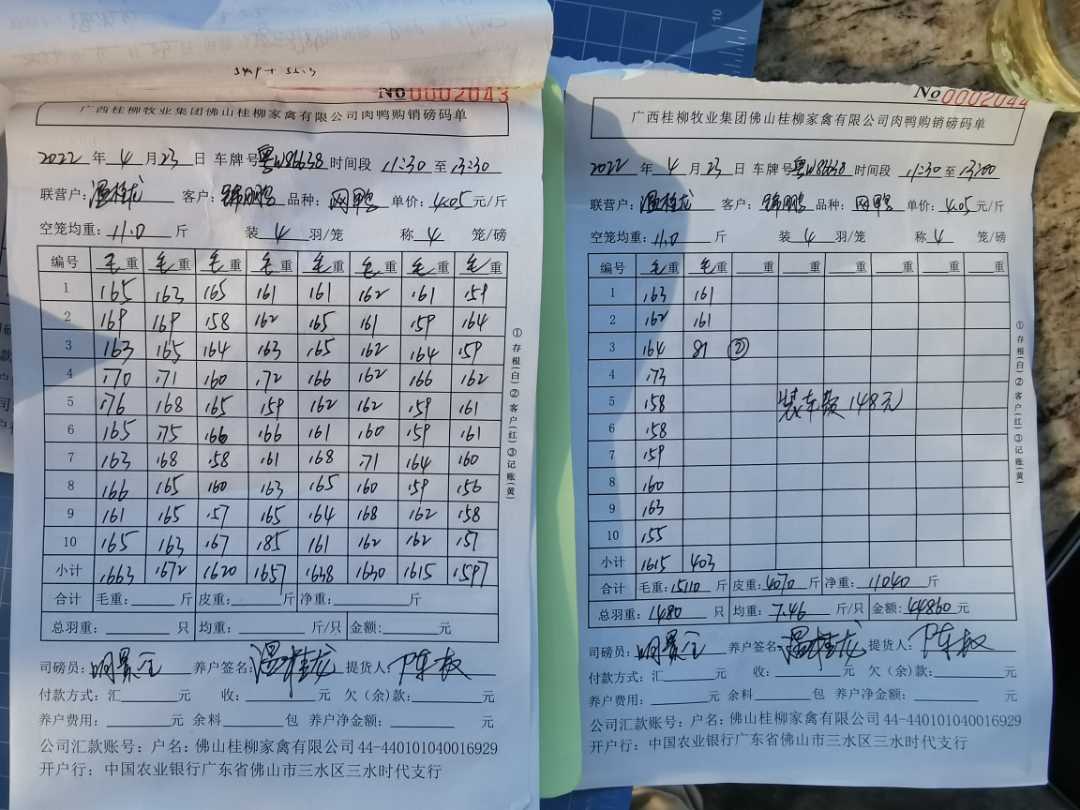 No 0002043
广西桂柳牧业集团佛山桂柳家禽有限公司肉鸭购销磅码单
2022 年 4 月 23 日 车牌号 粤W86638 时间段 11:30 至 13:30
联营户: 温桂龙 客户: 锦鹏 品种: 网鸭 单价: 4.05 元/斤
空笼均重: 11.0 斤 装 4 羽/笼 称 4 笼/磅
编号 毛重 毛重 毛重 毛重 毛重 毛重 毛重 毛重
1 165 163 165 161 161 162 161 159
2 169 169 158 162 165 161 159 164
3 163 165 164 163 165 162 164 159
4 170 171 160 172 166 162 166 162
5 176 168 165 159 162 162 159 161
6 165 175 166 166 161 160 159 161
7 163 168 158 161 168 171 164 160
8 166 165 160 163 165 160 159 156
9 161 165 157 165 164 168 162 158
10 165 163 167 185 161 162 162 157
小计 1663 1672 1620 1657 1638 1630 1615 1597
合计 毛重: 斤 皮重: 斤 净重: 斤
总羽重: 只 均重: 斤/只 金额: 元
司磅员: 养户签名: 温桂龙 提货人: 陈权
付款方式: 汇 元 收: 元 欠(余)款: 元
养户费用: 元 余料 包 养户净金额: 元
公司汇款账号: 户名: 佛山桂柳家禽有限公司 44-440101040016929
开户行: 中国农业银行广东省佛山市三水区三水时代支行
①存根(白)②客户(红)③记账(黄)
No 0002044
广西桂柳牧业集团佛山桂柳家禽有限公司肉鸭购销磅码单
2022 年 4 月 23 日 车牌号 粤W86638 时间段 11:30 至 13:00
联营户: 温桂龙 客户: 锦鹏 品种: 网鸭 单价: 4.05 元/斤
空笼均重: 11.0 斤 装 4 羽/笼 称 4 笼/磅
编号 毛重 毛重 重 重 重 重 重 重
1 163 161
2 162 161
3 164 81 ②
4 173
5 158 装车款 148元
6 158
7 159
8 160
9 163
10 155
小计 1615 403
合计 毛重: 15110 斤 皮重: 4070 斤 净重: 11040 斤
总羽重: 1480 只 均重: 7.46 斤/只 金额: 44860 元
司磅员: 养户签名: 温桂龙 提货人: 陈权
付款方式: 汇 元 收: 元 欠(余)款: 元
养户费用: 元 余料 包 养户净金额: 元
公司汇款账号: 户名: 佛山桂柳家禽有限公司 44-440101040016929
开户行: 中国农业银行广东省佛山市三水区三水时代支行
①存根(白)②客户(红)③记账(黄)
10